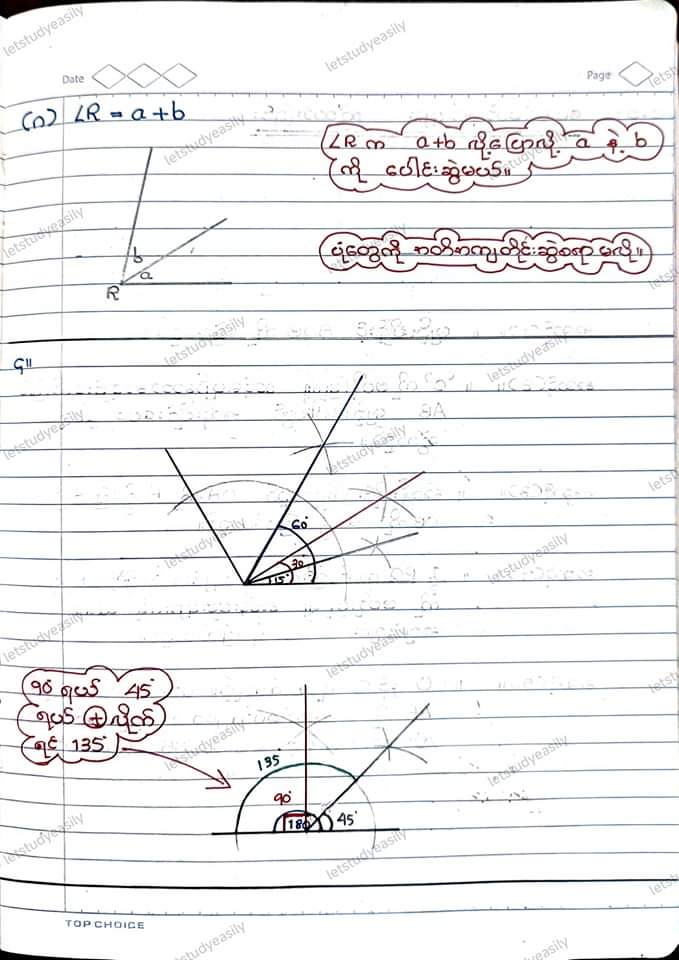 Date
Page
(ဂ) ∠R = a+b
∠R က a+b လို့ပြောလို့ a နဲ့ b
ကို ပေါင်းဆွဲမယ်။
ပုံတွေကို အတိအကျတိုင်းဆွဲစရာ မလို။
b
a
R
၄။
60°
30°
15°
90 ရယ် 45°
ရယ် + လိုက်
ရင် 135°
135°
90°
180
45°
TOP CHOICE
letstudyeasily